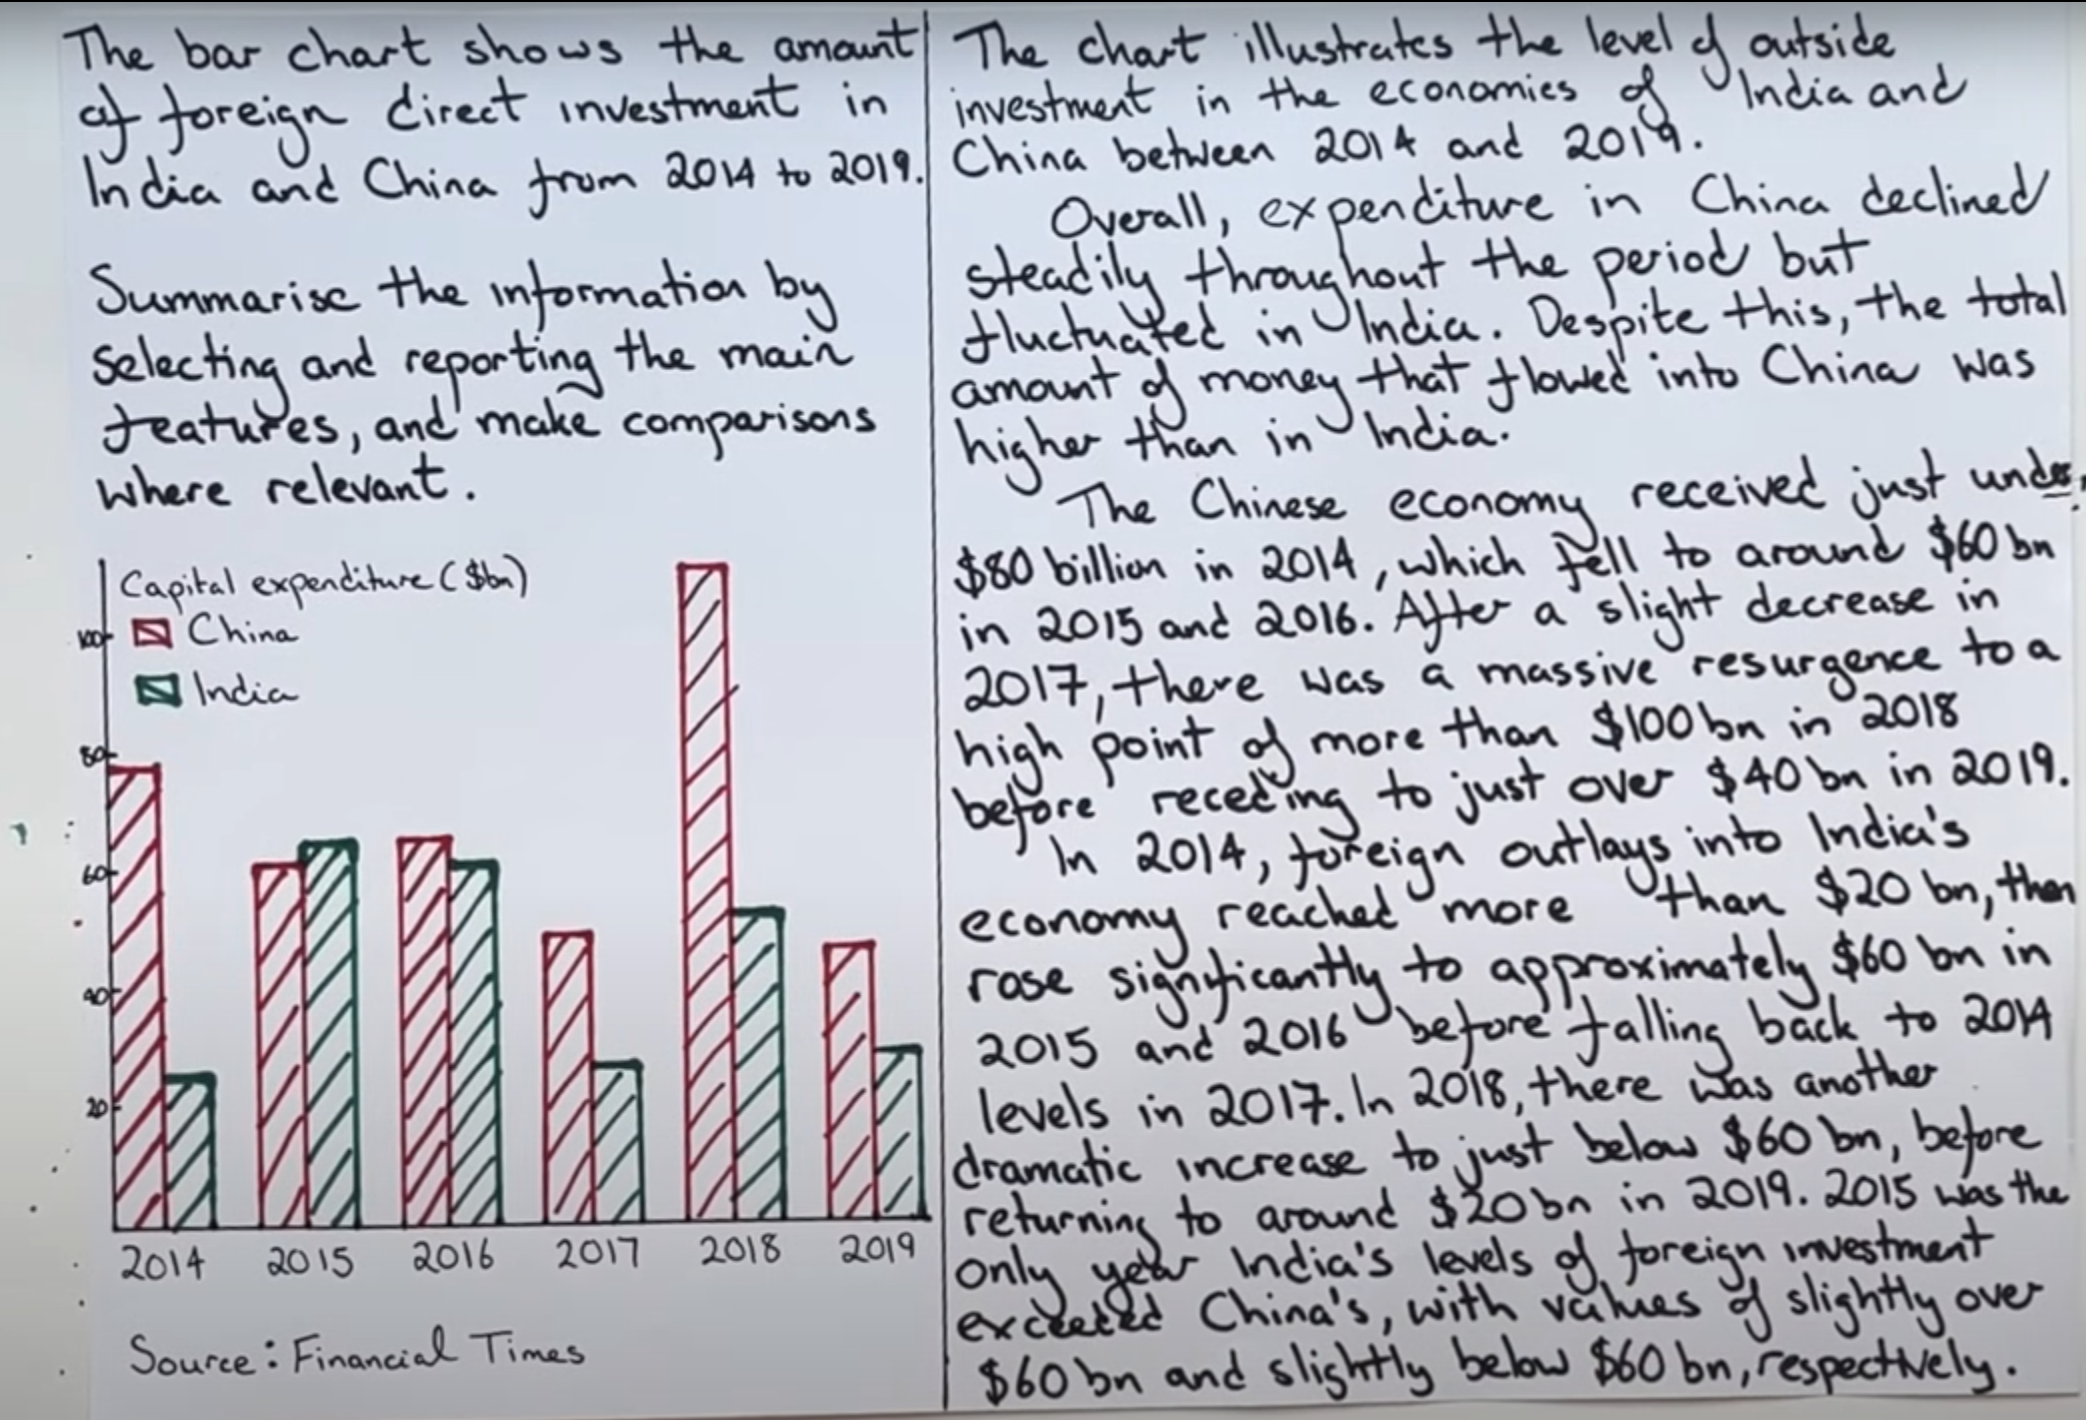 The bar chart shows the amount
of foreign direct investment in
India and China from 2014 to 2019.
Summarise the information by
selecting and reporting the main
features, and make comparisons
where relevant.
Capital expenditure ($bn)
China
India
100
80
60
40
20
2014 2015 2016 2017 2018 2019
Source: Financial Times
The chart illustrates the level of outside
investment in the economies of India and
China between 2014 and 2019.
Overall, expenditure in China declined
steadily throughout the period but
fluctuated in India. Despite this, the total
amount of money that flowed into China was
higher than in India.
The Chinese economy received just under
$80 billion in 2014, which fell to around $60 bn
in 2015 and 2016. After a slight decrease in
2017, there was a massive resurgence to a
high point of more than $100 bn in 2018
before receding to just over $40 bn in 2019.
In 2014, foreign outlays into India's
economy reached more than $20 bn, then
rose significantly to approximately $60 bn in
2015 and 2016 before falling back to 2014
levels in 2017. In 2018, there was another
dramatic increase to just below $60 bn, before
returning to around $20 bn in 2019. 2015 was the
only year India's levels of foreign investment
exceeded China's, with values of slightly over
$60 bn and slightly below $60 bn, respectively.